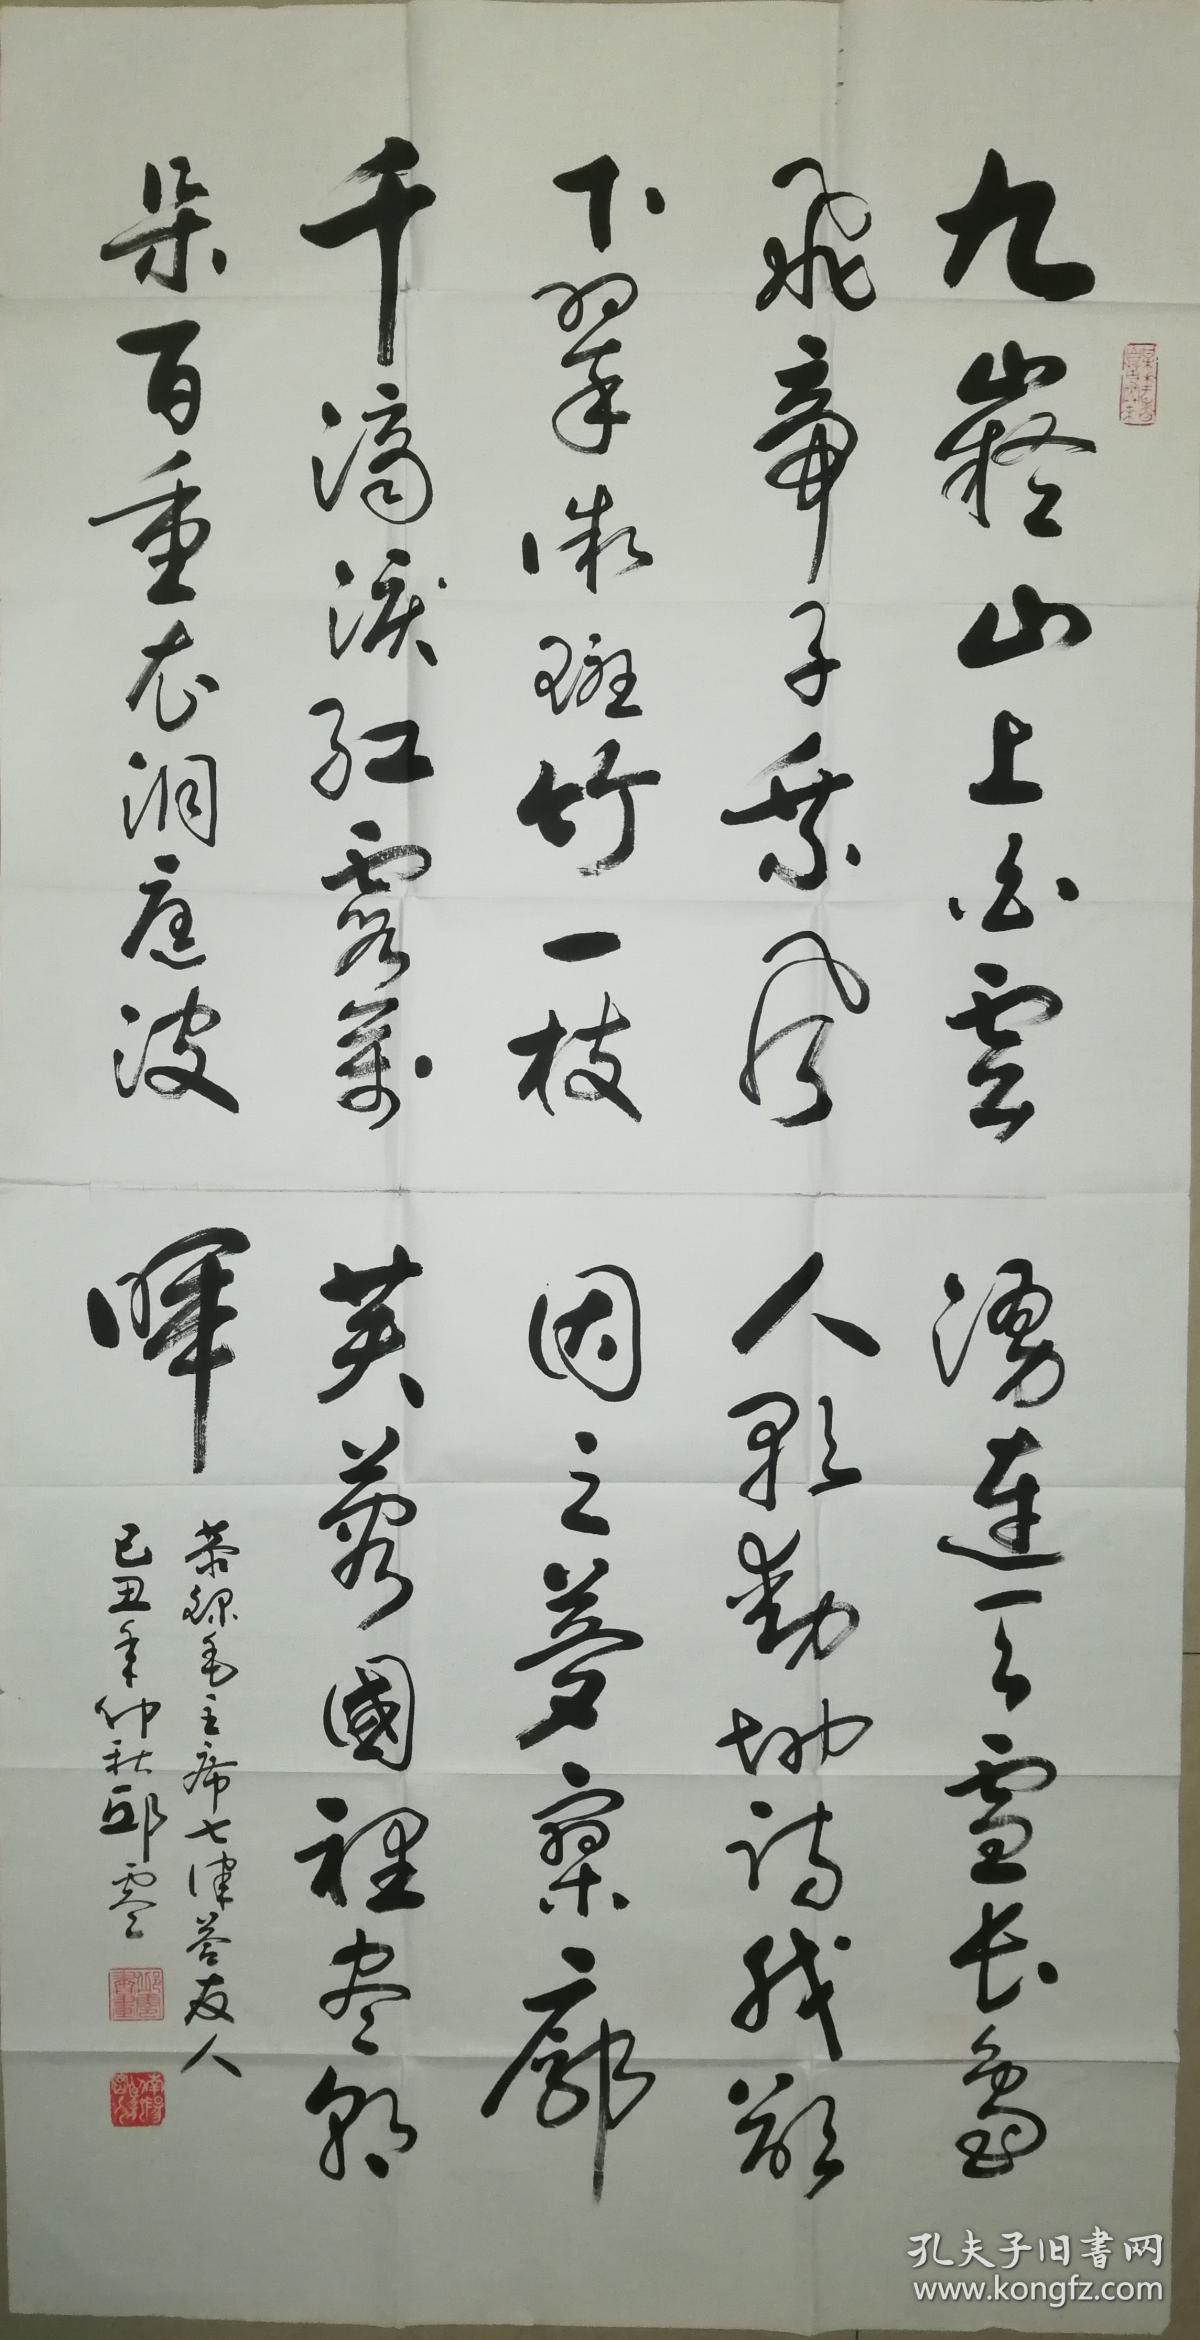 九嶷山上白雲
飛帝子乘风
下翠微斑竹一枝
千滴淚红霞萬
朵百重衣洞庭波
湧連天雪长島
人歌動地詩我欲
因之夢寥廓
芙蓉國裡尽朝
暉
恭録毛主席七律答友人
己丑年仲秋邱雲
孔夫子旧书网
www.kongfz.com